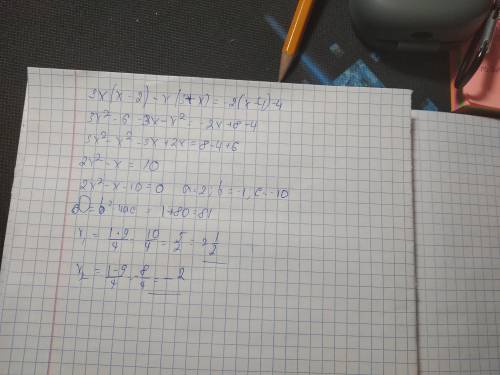 3x(x-2)-x(3+x)=-2(x-4)-4
3x²-6-3x-x²=-2x+8-4
3x²-x²-3x+2x=8-4+6
2x²-x=10
2x²-x-10=0 a=2, b=-1, c=-10
D=b²-4ac=1+80=81
x₁=\frac{1+9}{4}=\frac{10}{4}=\frac{5}{2}=2\frac{1}{2}
x₂=\frac{1-9}{4}=-\frac{8}{4}=-2